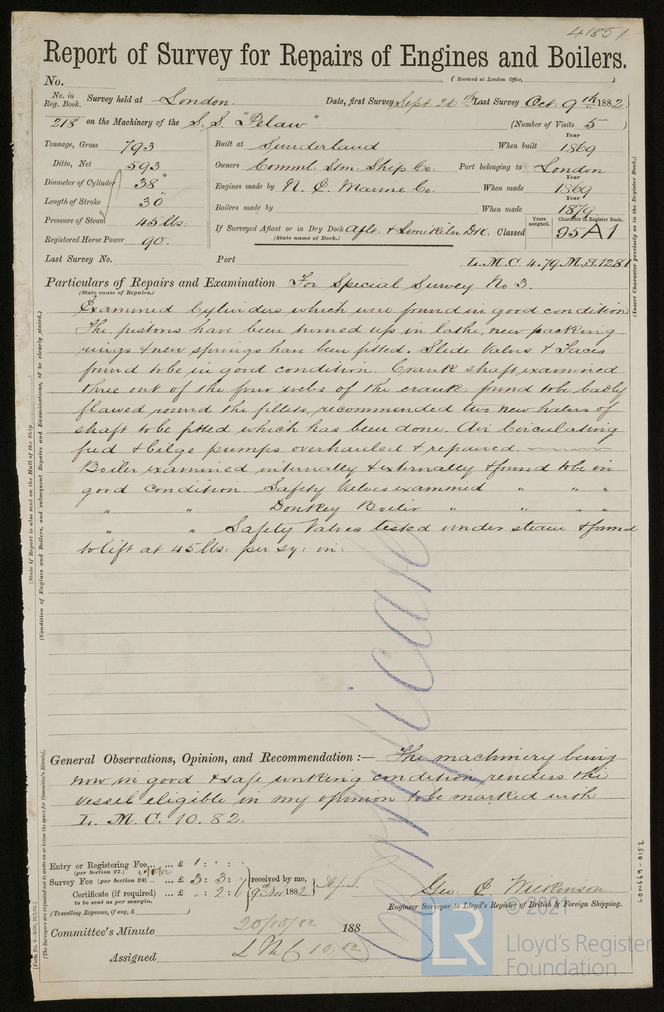 41851
Report of Survey for Repairs of Engines and Boilers.
No. (Received at London Office, )
No. in Reg. Book. Survey held at London. Date, first Survey Sept. 26th Last Survey Oct. 9th 1882
218 on the Machinery of the S. S. "Pelaw" (Number of Visits 5 )
Tonnage, Gross 793 Built at Sunderland When built Year 1869
Ditto, Net 593 Owners Comml. Stm. Ship Co. Port belonging to London
Diameter of Cylinder 38" Engines made by N. E. Marine Co. When made Year 1869
Length of Stroke 30" Boilers made by When made Year 1879
Pressure of Steam 45 lbs. If Surveyed Afloat or in Dry Dock Aflo. & Limekiln D.K. Classed Years assigned. 95 Character in Register Book. A1
(State name of Dock.)
Registered Horse Power 90.
Last Survey No. Port L.M.C. 4.79 M.S. 12.81
Particulars of Repairs and Examination For Special Survey No 3.
(State cause of Repairs.)
Examined Cylinders which were found in good condition
The pistons have been turned up in lathe, new packing
rings & new springs have been fitted. Slide Valves & Faces
found to be in good condition. Crank shaft examined
three out of the four webs of the crank found to be badly
flawed round the fillets, recommended two new halves of
shaft to be fitted which has been done. Air Circulating
feed & bilge pumps overhauled & repaired.
Boiler examined internally & externally & found to be in
good condition. Safety Valves examined " " "
" " Donkey Boiler " " " "
" " Safety Valves tested under steam & found
to lift at 45 lbs. per sq. in.
Certificate
General Observations, Opinion, and Recommendation :— The machinery being
now in good & safe working condition renders the
vessel eligible in my opinion to be marked with
L. M. C. 10. 82.
Entry or Registering Fee... £ 1 : :
(per Section 27.)
Survey Fee (per Section 28) £ 3 : 3 : received by me,
Certificate (if required) £ : 2 : 1882
to be sent as per margin.
(Travelling Expenses, if any, £ )
Geo. C.
Engineer Surveyor to Lloyd's Register of British & Foreign Shipping.
Committee's Minute 20/10/82 188
Assigned L M C 10.82
(State if Report is also sent on the Hull of the Ship)
(Condition of Engines and Boilers, and subsequent Repairs and Examinations, to be clearly stated.)
(The Surveyors are requested not to write on or below the space for Committee's Minute.)
(Insert Character precisely as in the Register Book.)
LON669-0152
© 2021
LR
Lloyd's Register
Foundation